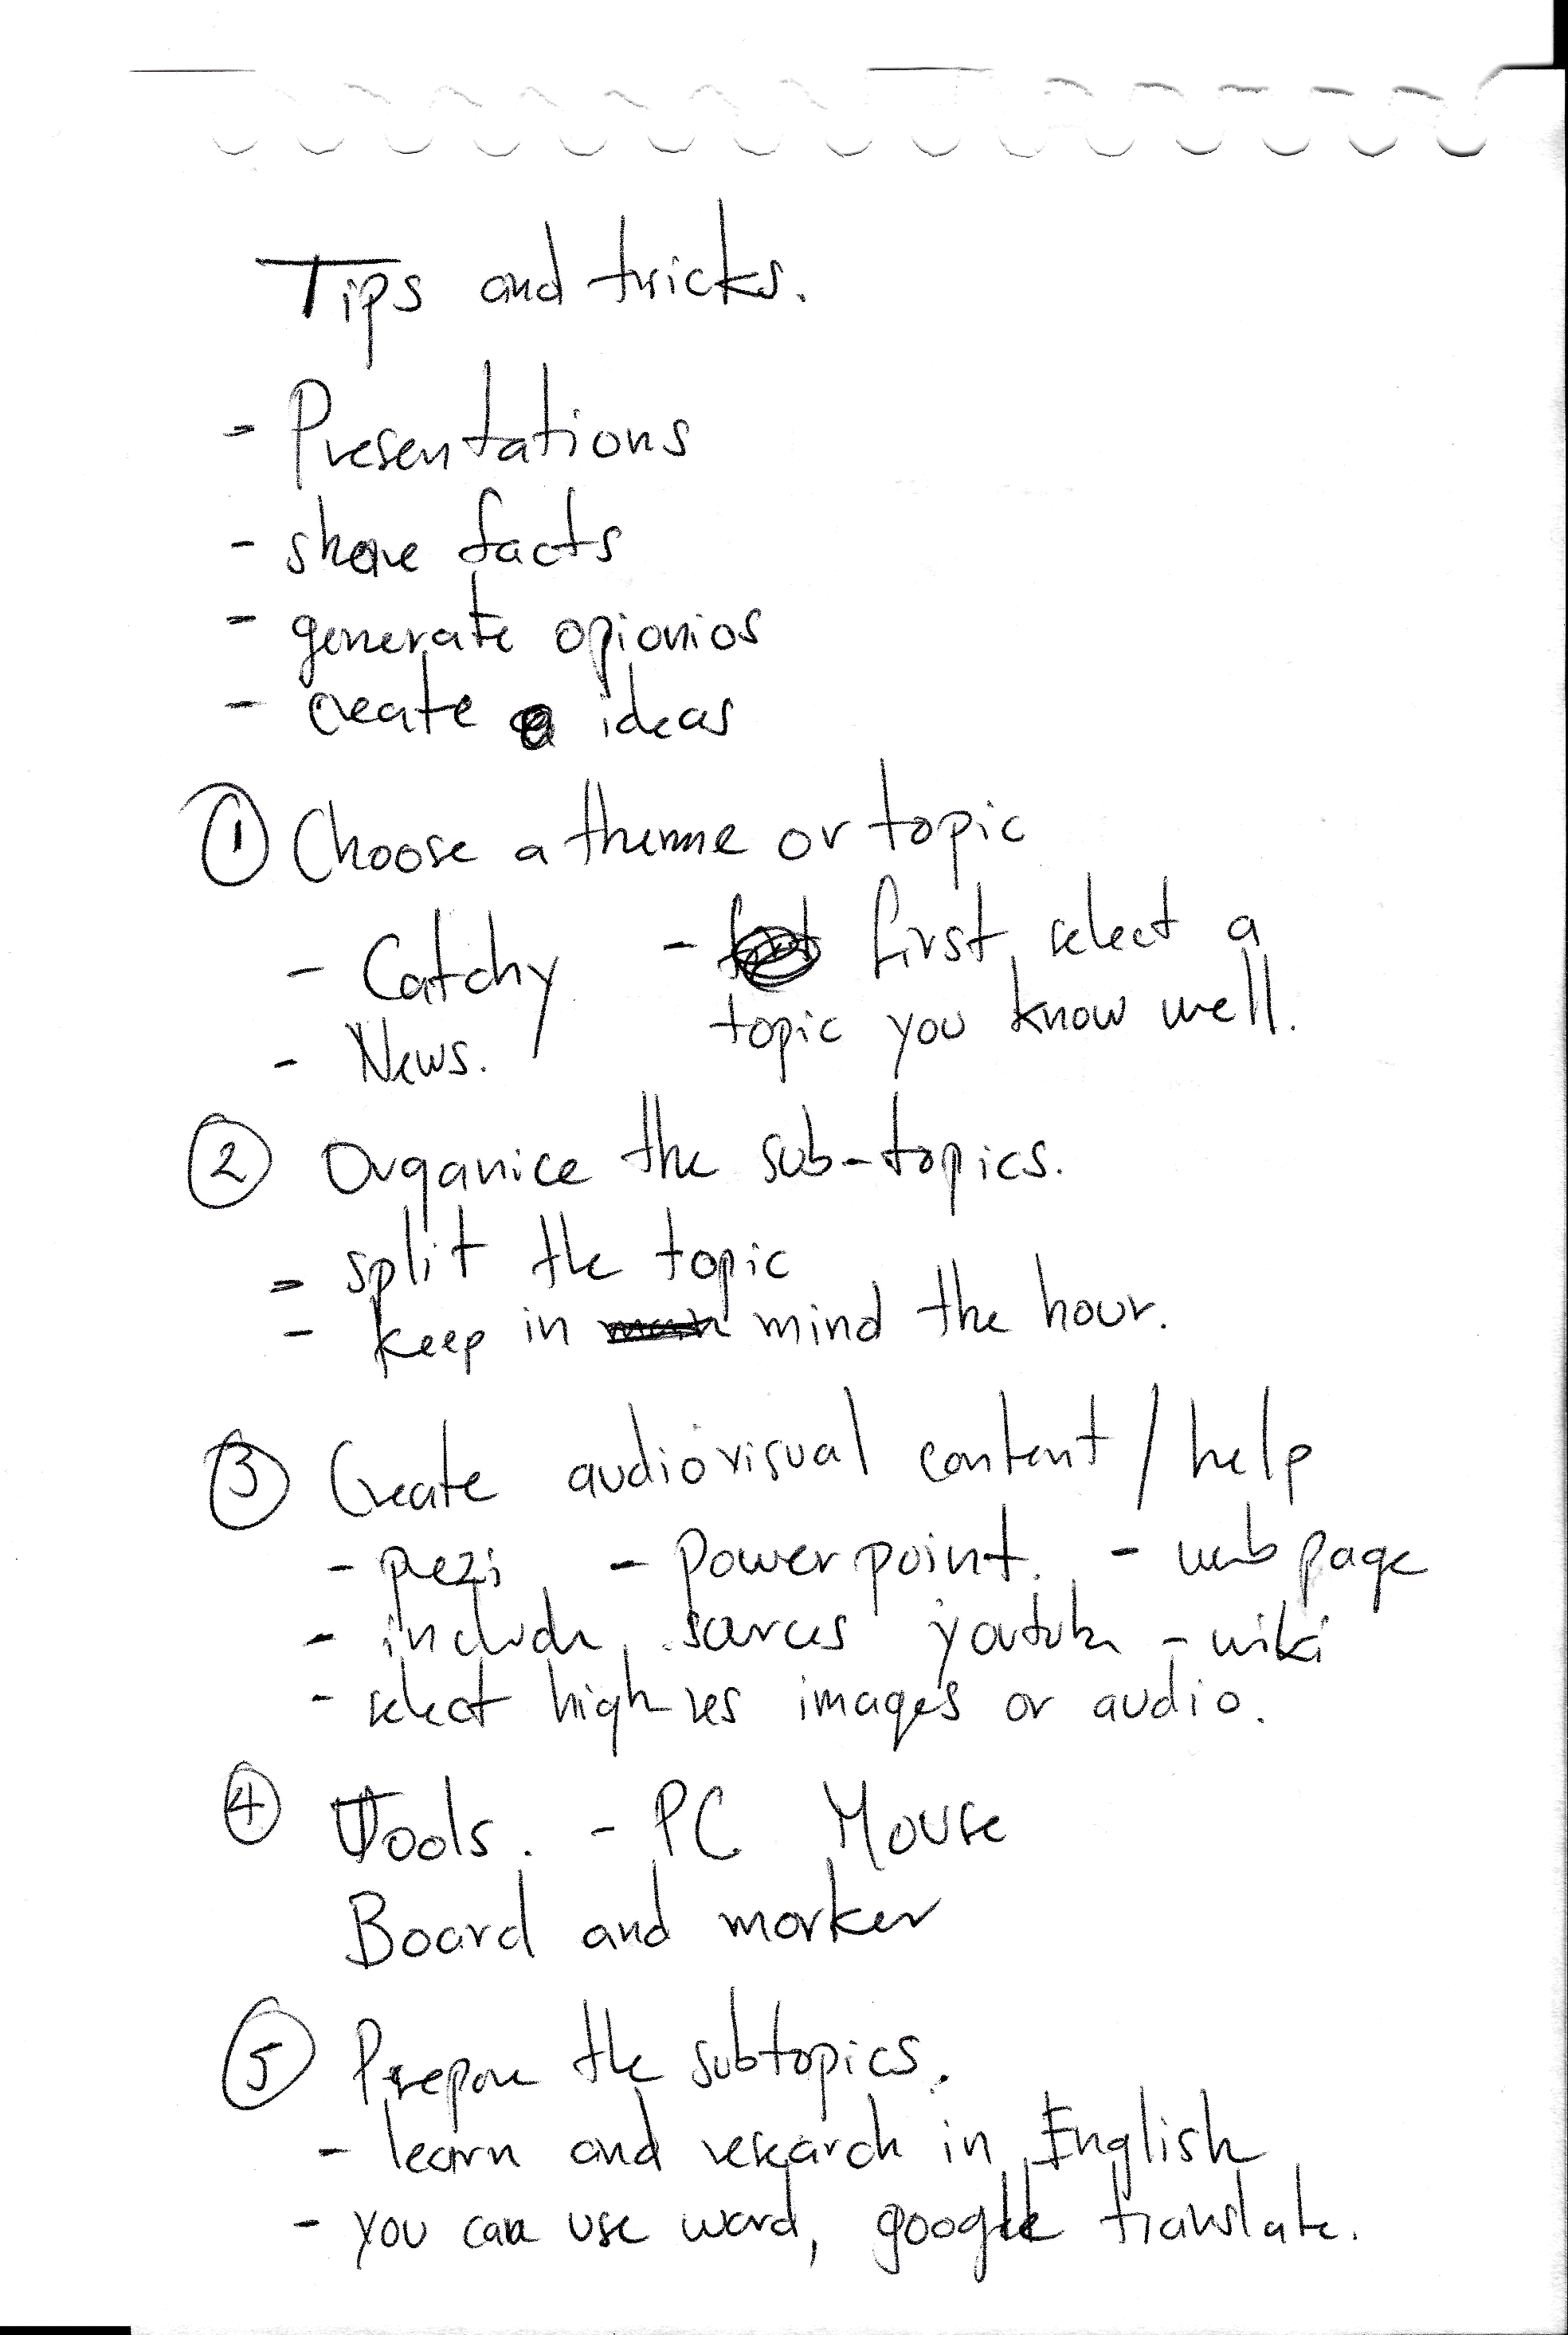 Tips and tricks.
- Presentations
- share facts
- generate opionios
- create ideas
① Choose a theme or topic
- Catchy - first select a
topic you know well.
- News.
② Organice the sub-topics.
- split the topic
- keep in mind the hour.
③ Create audiovisual content / help
- prezi - Powerpoint. - web page
- include sources youtube - wiki
- select high res images or audio.
④ Tools. - PC Mouse
Board and marker
⑤ Prepare the subtopics.
- learn and research in English
- you can use word, google translate.